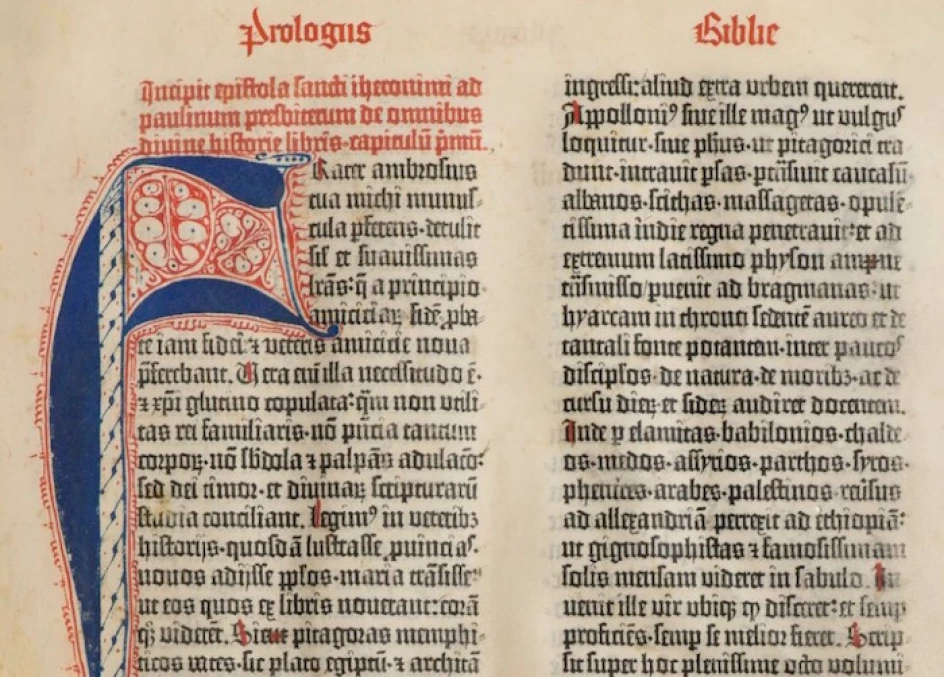 Prologus
Incipit epistola sancti iheronimi ad
paulinum presbiterum de omnibus
divine historie libris·capitulū p̄mū.
Frater ambrosius
tua michi munus-
cula pferens·detulit
sil' et suavissimas
l̄ras·q̄ a principio
amiciciaꝝ fidē pba-
te iam fidei ⁊ veteris amicicie nova
p̄ferebant. Vera em̄ illa necessitudo ē·
⁊ xp̄i glutino copulata·q̄m non utili-
tas rei familiaris·nō p̄ncia tantum
corpoꝝ·nō sb̄dola ⁊ palpās adulacō·
sed dei timor·et divinaꝝ scripturarū
studia conciliant. Legimꝰ in veteribꝫ
historijs·quosdā lustrasse ꝓuincias·
novos adijsse pp̄los·maria trāsisse·
ut eos quos ex libris noverant·corā
qꝫ viderēt. Sicut pitagoras memphi-
ticos vates·sic plato egiptū·⁊ architā
Biblie
ingressi·aliud extra urbem quererent.
Appolloniꝰ sive ille magꝰ ut vulgus
loquitur·sive phus·ut pitagorici tra-
dunt·intravit p̄sas·ptrāsivit caucasū·
albanos·scithas·massagetas·opulē-
tissima indie regna penetravit·et ad
extremum latissimo physon amne
trāsmisso pvenit ad bragmanas·ut
hyarcam in throno sedente aureo et de
tantali fonte potantem·inter paucos
discip̄los·de natura·de moribꝫ·ac de
cursu dieꝝ et sideꝝ audiret docentem.
Inde ꝑ elamitas·babilonios·chalde-
os·medos·assyrios·parthos·syros·
phenices·arabes·palestinos·reūsus
ad allexandriā·perrexit ad ethiopiā·
ut gignosophistas ⁊ famosissimam
solis mensam videret in sabulo. In-
venit ille vir ubiqꝫ qd̄ disceret·et semp̄
proficiēs·semp̄ se melior fieret. Scrip-
sit super hoc plenissime octo volumi-